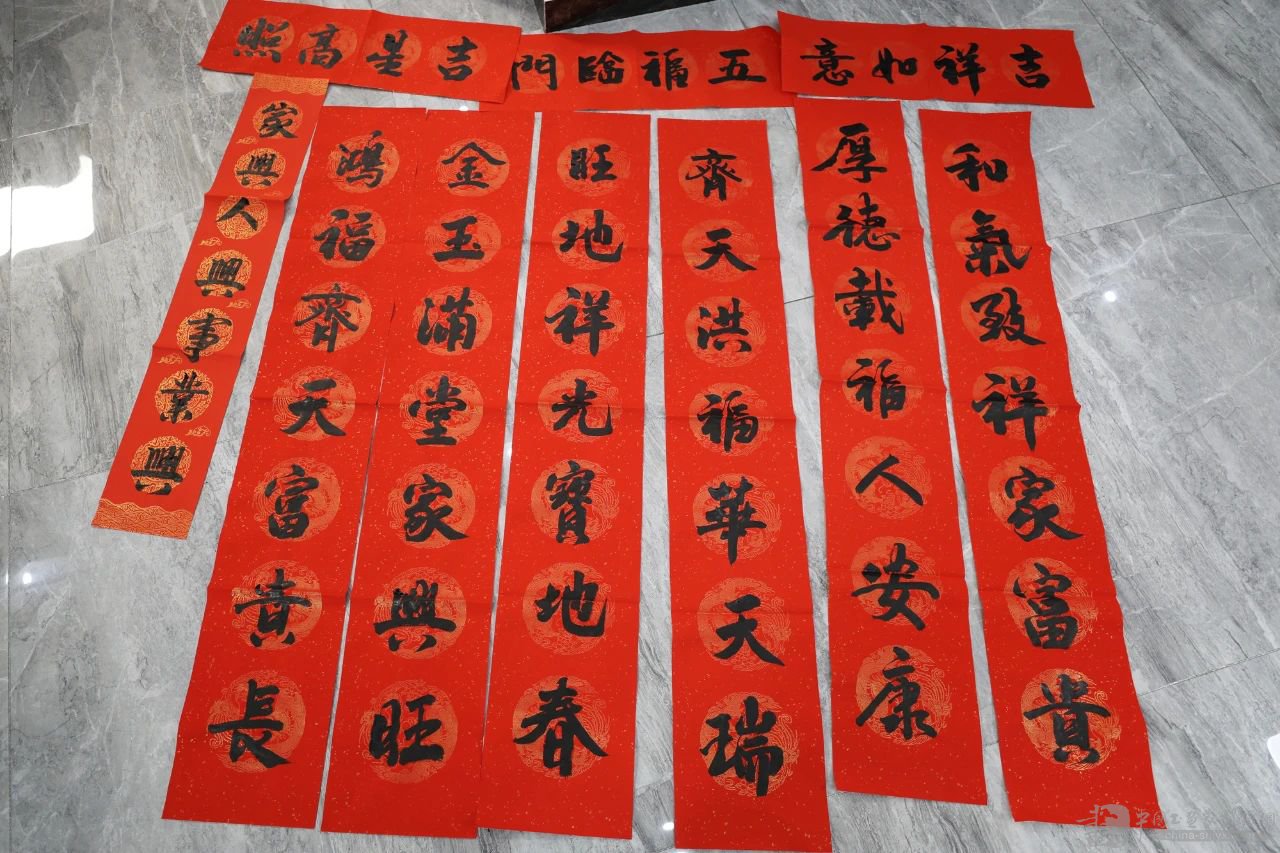 吉祥如意
五福臨門
吉星高照
和氣致祥家富貴
厚德載福人安康
齊天洪福華天瑞
旺地祥光寶地春
金玉滿堂家興旺
鴻福齊天富貴長
家興人興事業興